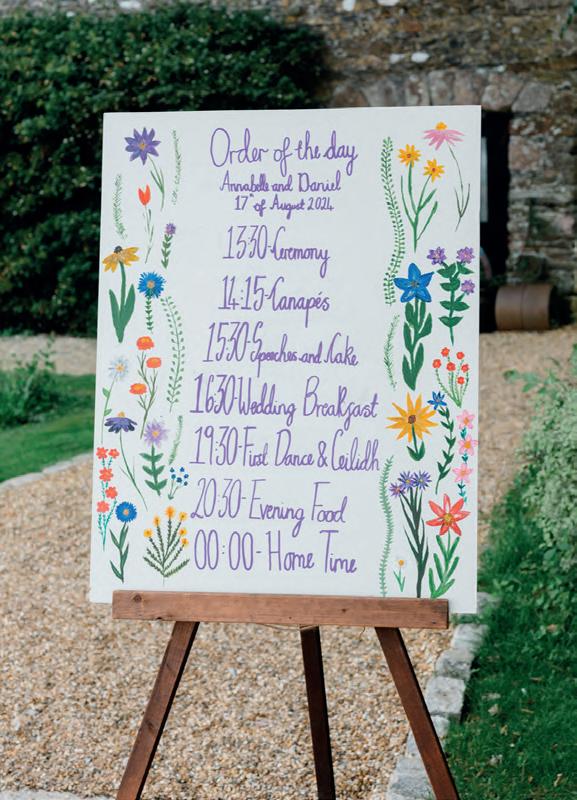 Order of the day
Annabelle and Daniel
17th of August 2024
13:30-Ceremony
14:15-Canapés
15:30-Speeches and Cake
16:30-Wedding Breakfast
19:30-First Dance & Ceilidh
20:30-Evening Food
00:00-Home Time